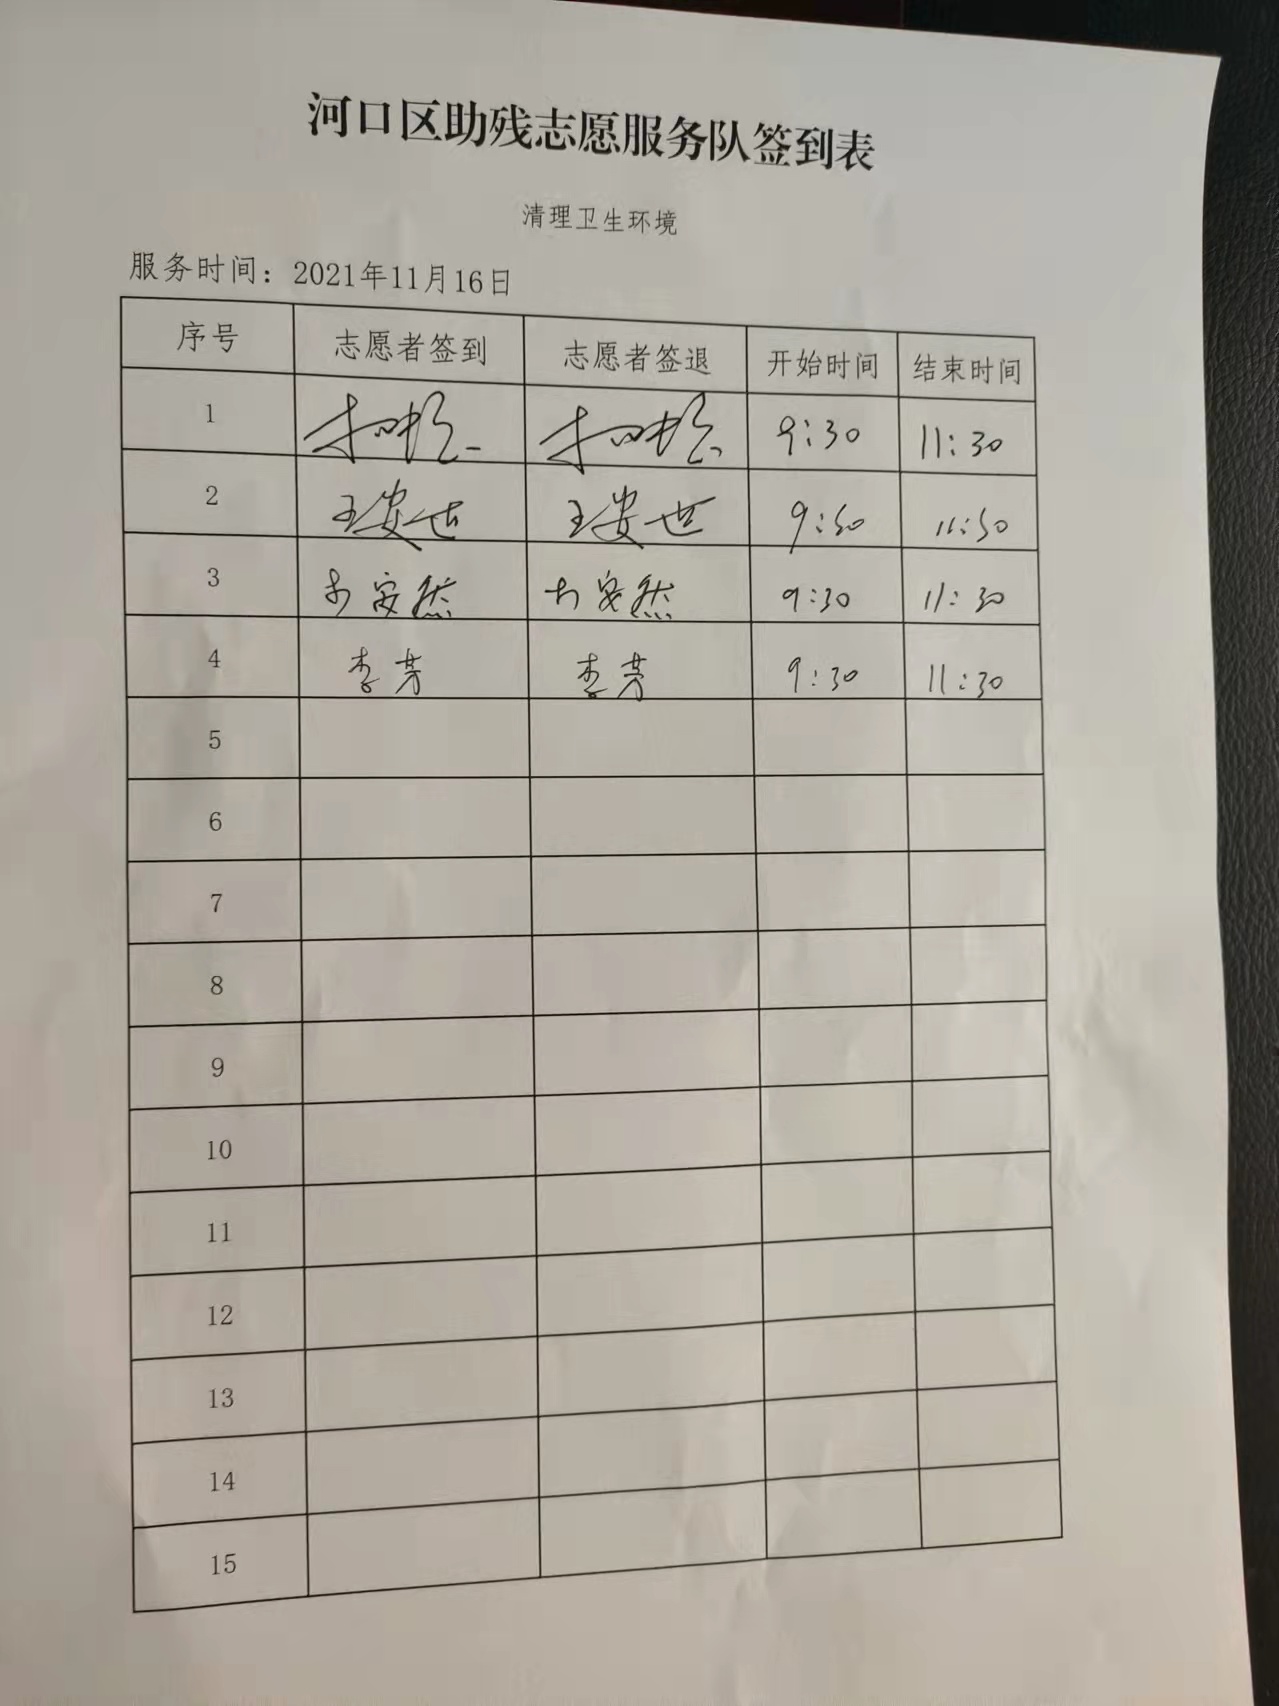 河口区助残志愿服务队签到表
清理卫生环境
服务时间：2021年11月16日
序号 志愿者签到 志愿者签退 开始时间 结束时间
1 9:30 11:30
2 王安世 王安世 9:30 11:30
3 安然 安然 9:30 11:30
4 李芳 李芳 9:30 11:30
5
6
7
8
9
10
11
12
13
14
15